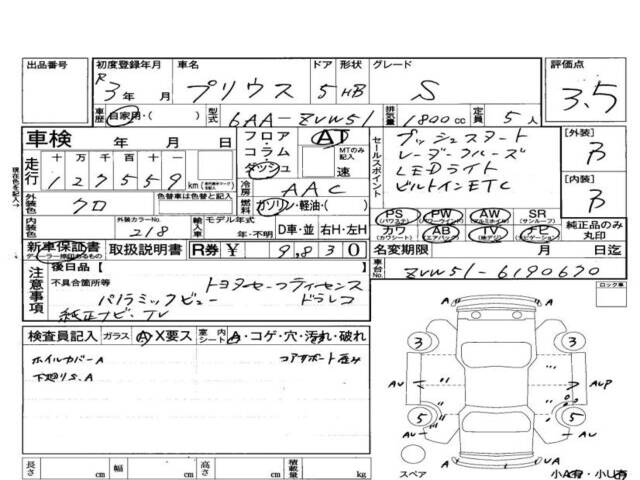 出品番号 初度登録年月 車名 ドア 形状 グレード 評価点
R3年 月 プリウス 5 HB S 3.5
車歴 自家用・( ) 型式 6AA-ZVW51 排気量 1800cc 定員 5人
車検 年 月 日
フロア・コラム・ダッシュ AT MTのみ記入 速
セールスポイント
プッシュスタート
レーダークルーズ
LEDライト
ビルトインETC
[外装] B
[内装] B
現在色を記入→
走行 十万千百十一
127559km
冷房 AAC
外装色 クロ 色替車は色替と記入
燃料 ガソリン・軽油・( )
内装色 外装カラーNo. 218
輸入車 モデル年式 年・不明 D車・並 右H・左H
PS(パワステ) PW(パワーウィンド) AW(アルミホイル) SR(サンルーフ)
カワ(カワシート) AB(エアバック) TV(地デジ) ナビ(ナビゲーション)
純正品のみ丸印
新車保証書 ディーラー捺印あるもの 取扱説明書 R券 ¥ 9,830
名変期限 月 日迄
車台No. ZVW51-6190670
注意事項 後日品【 】
不具合箇所等 トヨタセーフティセンス
パノラミックビュー ドラレコ
純正ナビ・TV
ロック車
検査員記入 ガラス A・X要ス 室内シート A・コゲ・穴・汚れ・破れ
ホイルカバーA コアサポート歪み
下廻りS.A
3 3
AU AUP
5 5
AU AU
UA
スペア
小A有・小U有
長さ cm 幅 cm 高さ cm 積載量 kg